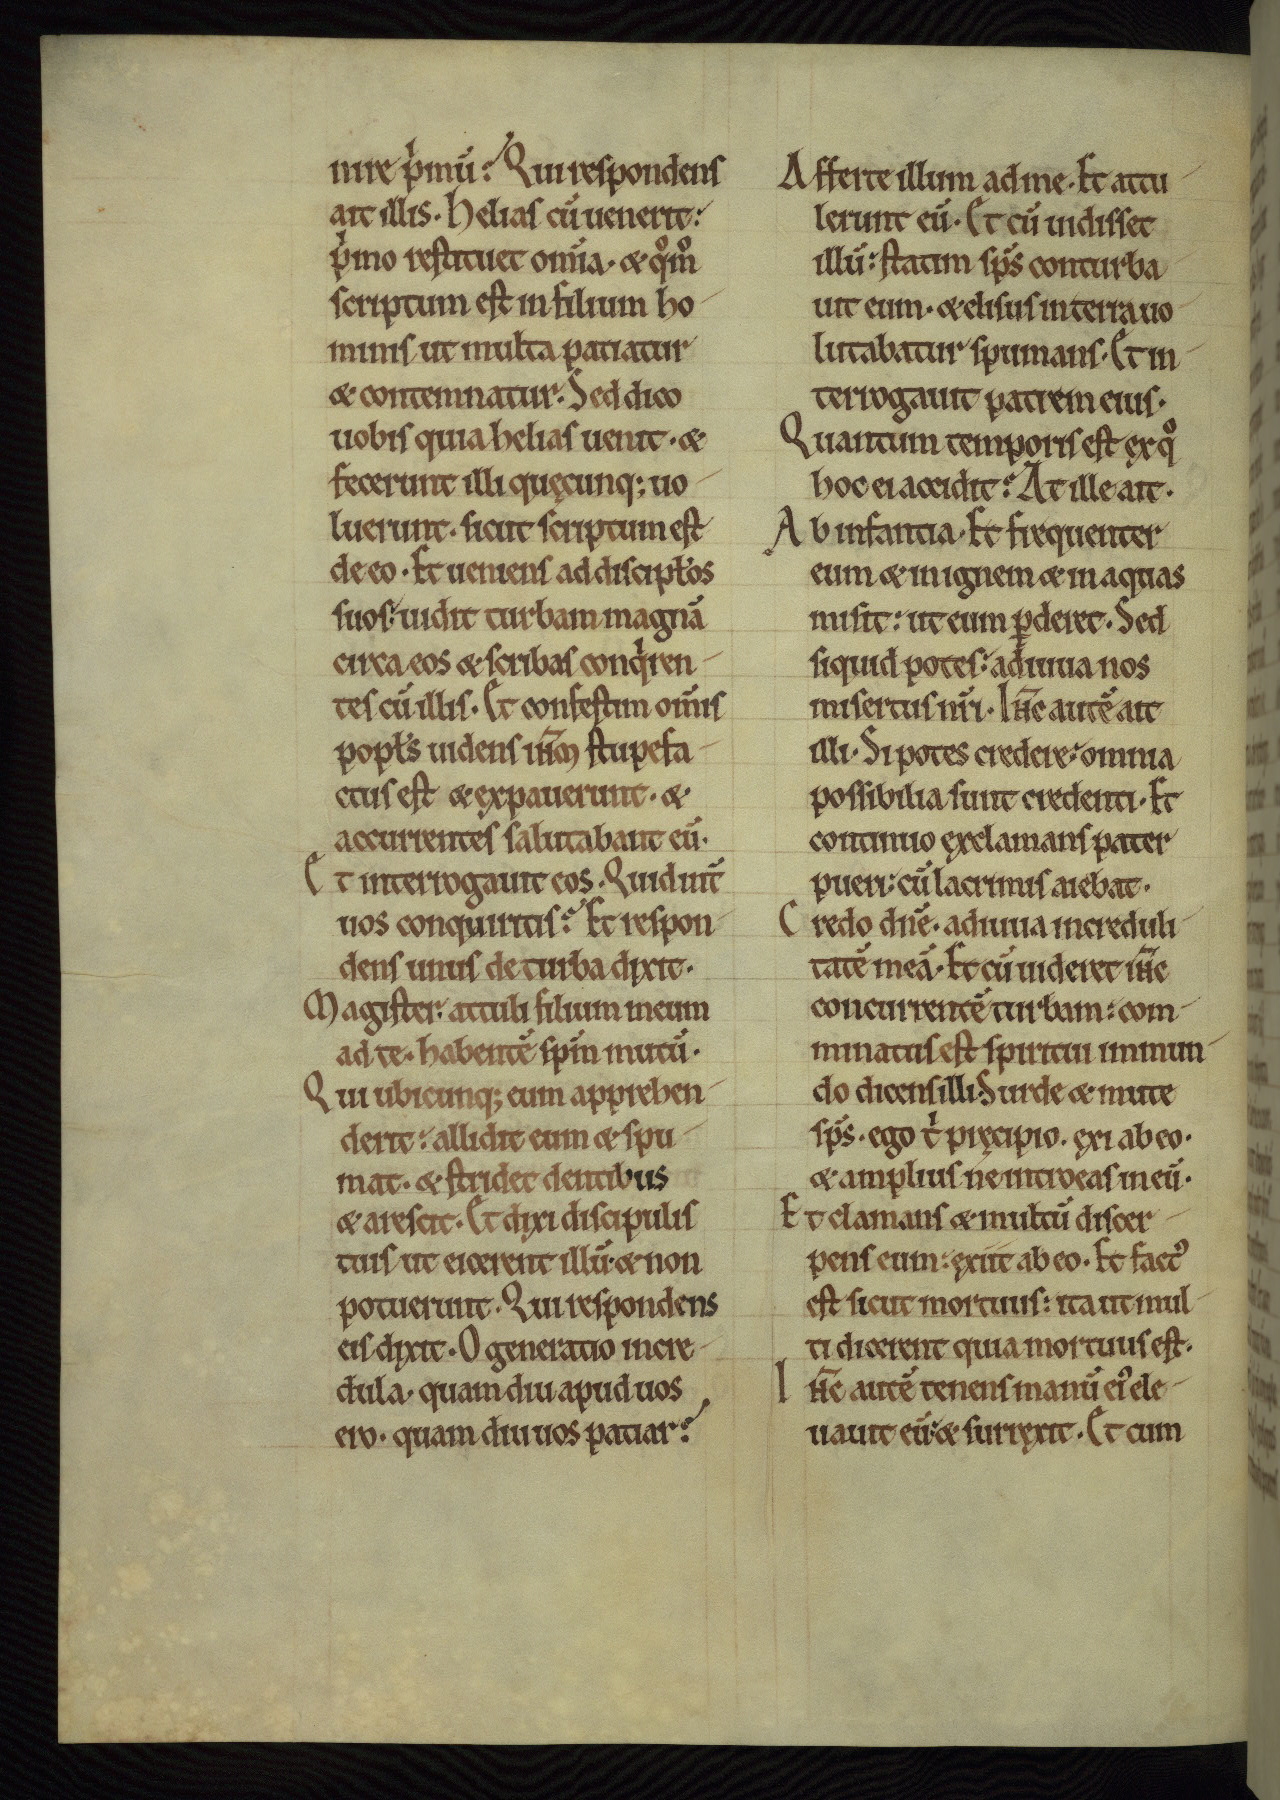 nire p̍mū? Qui respondens
ait illis. Helias cū uenerit:
p̍mo restituet om̄ia. & qͦmͦ
scriptum est in filium ho-
minis ut multa patiatur
& contemnatur. Sed dico
uobis quia helias uenit. &
fecerunt illi quęcunq; uo-
luerunt. sicut scriptum est
de eo. Et ueniens ad discipłos
suos: uidit turbam magnā
circa eos & scribas conq̍ren-
tes cū illis. Et confestim om̄is
popłs uidens ih̄m stupefa-
ctus est & expauerunt. &
accurrentes salutabant eū.
Et interrogauit eos. Quid int̄
uos conquiritis? Et respon-
dens unus de turba dixit.
Magister: attuli filium meum
ad te. habentē sp̄m mutū.
Qui ubicunq; eum apprehen-
derit: allidit eum & spu-
mat. & stridet dentibus
& arescit. Et dixi discipulis
tuis ut eicerent illū. & non
potuerunt. Qui respondens
eis dixit. O generatio incre-
dula. quam diu apud uos
ero. quam diu uos patiar?
Afferte illum ad me. Et attu-
lerunt eū. Et cū uidisset
illū: statim sp̄s conturba-
uit eum. & elisus in terra uo-
lutabatur spumans. Et in-
terrogauit patrem eius.
Quantum temporis est ex qͦ
hoc ei accidit? At ille ait.
Ab infantia. Et frequenter
eum & in ignem & in aquas
misit: ut eum ꝑderet. Sed
si quid potes: adiuua nos
misertus nr̄i. Ih̄c autē ait
illi. Si potes credere: omnia
possibilia sunt credenti. Et
continuo exclamans pater
pueri: cū lacrimis aiebat.
Credo dn̄e. adiuua increduli-
tatē meā. Et cū uideret ih̄c
concurrentē turbam: com-
minatus est spiritui immun-
do dicens illi. Surde & mute
sp̄s. ego t̍ pręcipio. exi ab eo.
& amplius ne introeas in eū.
Et clamans & multū discer-
pens eum: exiit ab eo. Et fact᾽
est sicut mortuus: ita ut mul-
ti dicerent quia mortuus est.
Ih̄c autē tenens manū ei᾽ ele-
uauit eū: & surrexit. Et cum